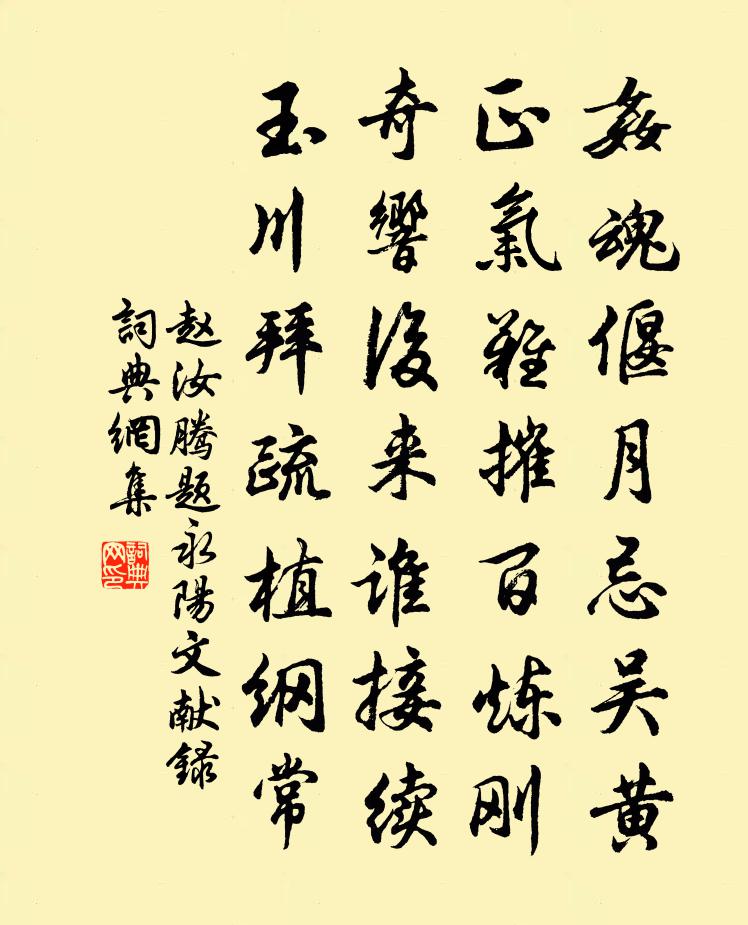 姦魂偃月忌吴黄
正氣难摧百炼刚
奇響後来谁接续
玉川拜疏植纲常
赵汝腾题永陽文献録
詞典網集
詞典网印